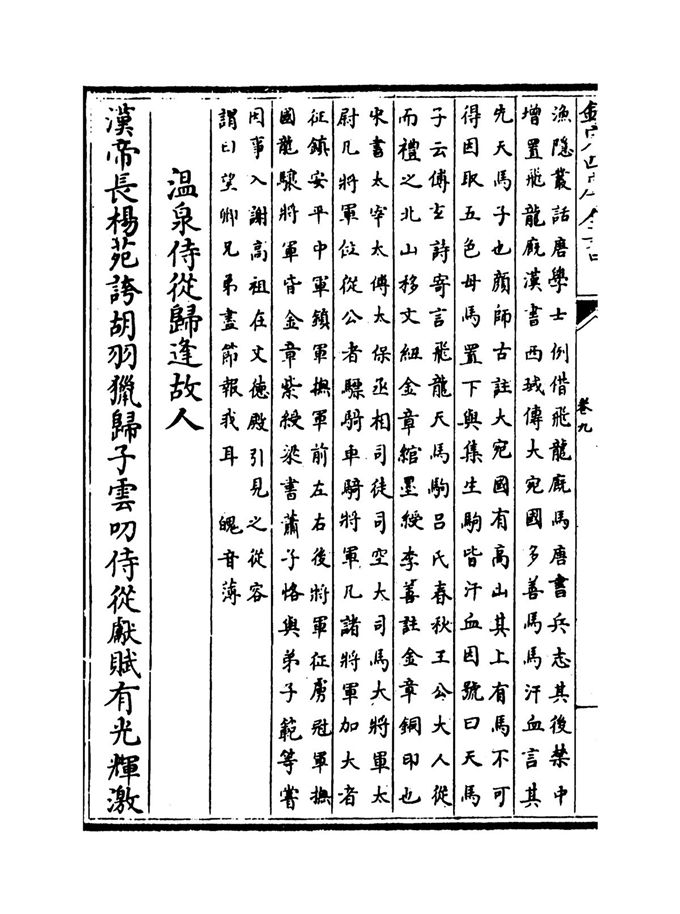 欽定四庫全書
卷九
漁隱叢話唐學士例借飛龍廐馬唐書兵志其後禁中
增置飛龍廐漢書西域傳大宛國多善馬馬汗血言其
先天馬子也顔師古註大宛國有高山其上有馬不可
得因取五色母馬置下與集生駒皆汗血因號曰天馬
子云傅玄詩寄言飛龍天馬駒吕氏春秋王公大人從
而禮之北山移文紐金章綰墨綬李善註金章銅印也
宋書太宰太傅太保丞相司徒司空大司馬大將軍太
尉凡將軍位從公者驃騎車騎將軍凡諸將軍加大者
征鎮安平中軍鎮軍撫軍前左右後將軍征虜冠軍撫
國龍驤將軍皆金章紫綬梁書蕭子恪與弟子範等嘗
因事入謝高祖在文德殿引見之從容
謂曰望卿兄弟盡節報我耳 魄音薄
温泉侍從歸逢故人
漢帝長楊苑誇胡羽獵歸子雲叨侍從獻賦有光輝激